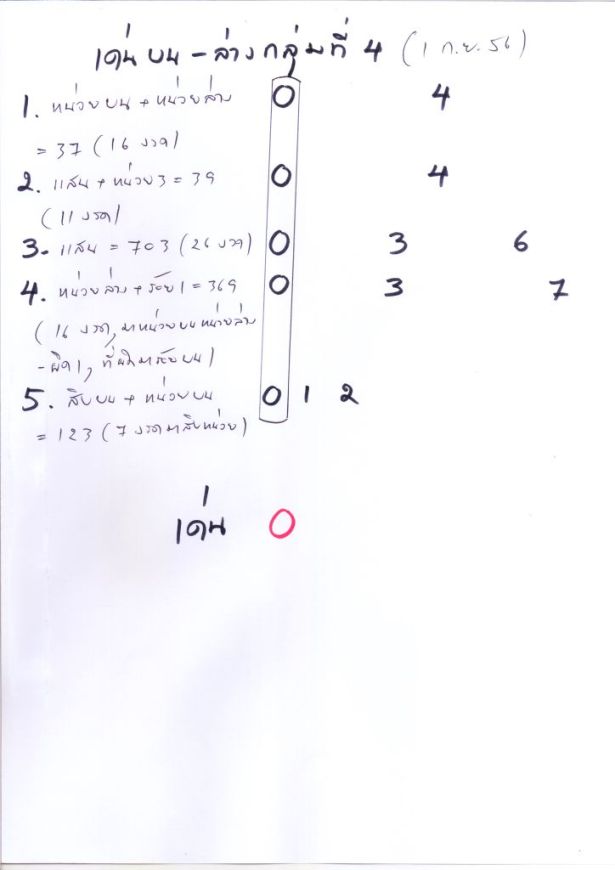 เด่น บน - ล่าง กลุ่มที่ 4 (1 ก.ย. 56)
1. หน่วยบน + หน่วยล่าง 0 4
= 37 (16 งวด)
2. แสน + หน่วย3 = 39 0 4
(11 งวด)
3. แสน = 703 (26 งวด) 0 3 6
4. หน่วยล่าง + ร้อย1 = 369 0 3 7
(16 งวด, มาหน่วยบนหน่วยล่าง
- ผิด1, ที่ผิดมาร้อยบน)
5. สิบบน + หน่วยบน 0 1 2
= 123 (7 งวดมาสิบหน่วย)
เด่น 0